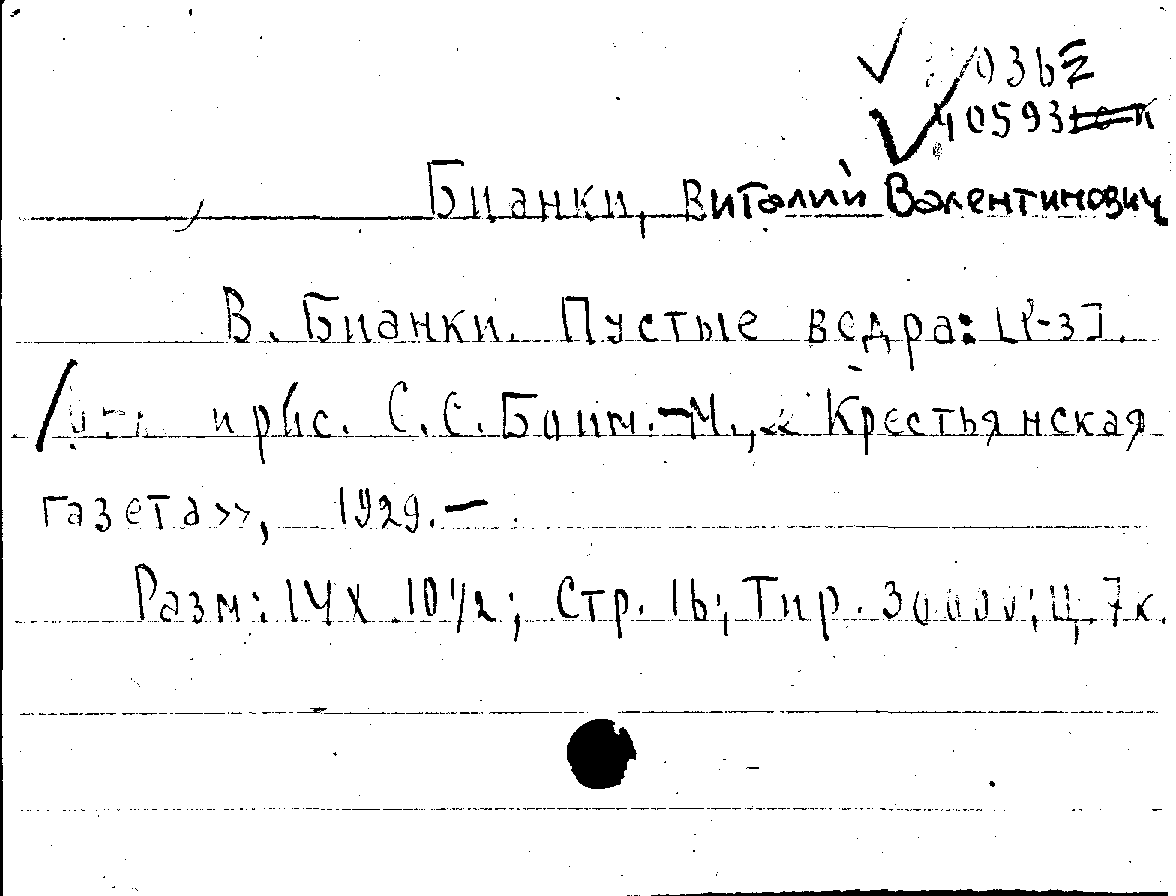 036
40593
Бианки, Виталий Валентинович
В. Бианки. Пустые ведра: [Р-з].
и рис. С.С. Боим.–М., «Крестьянская
газета», 1929.–
Разм: 14 х 10 1/2; Стр. 16; Тир. 30000; Ц. 7к.